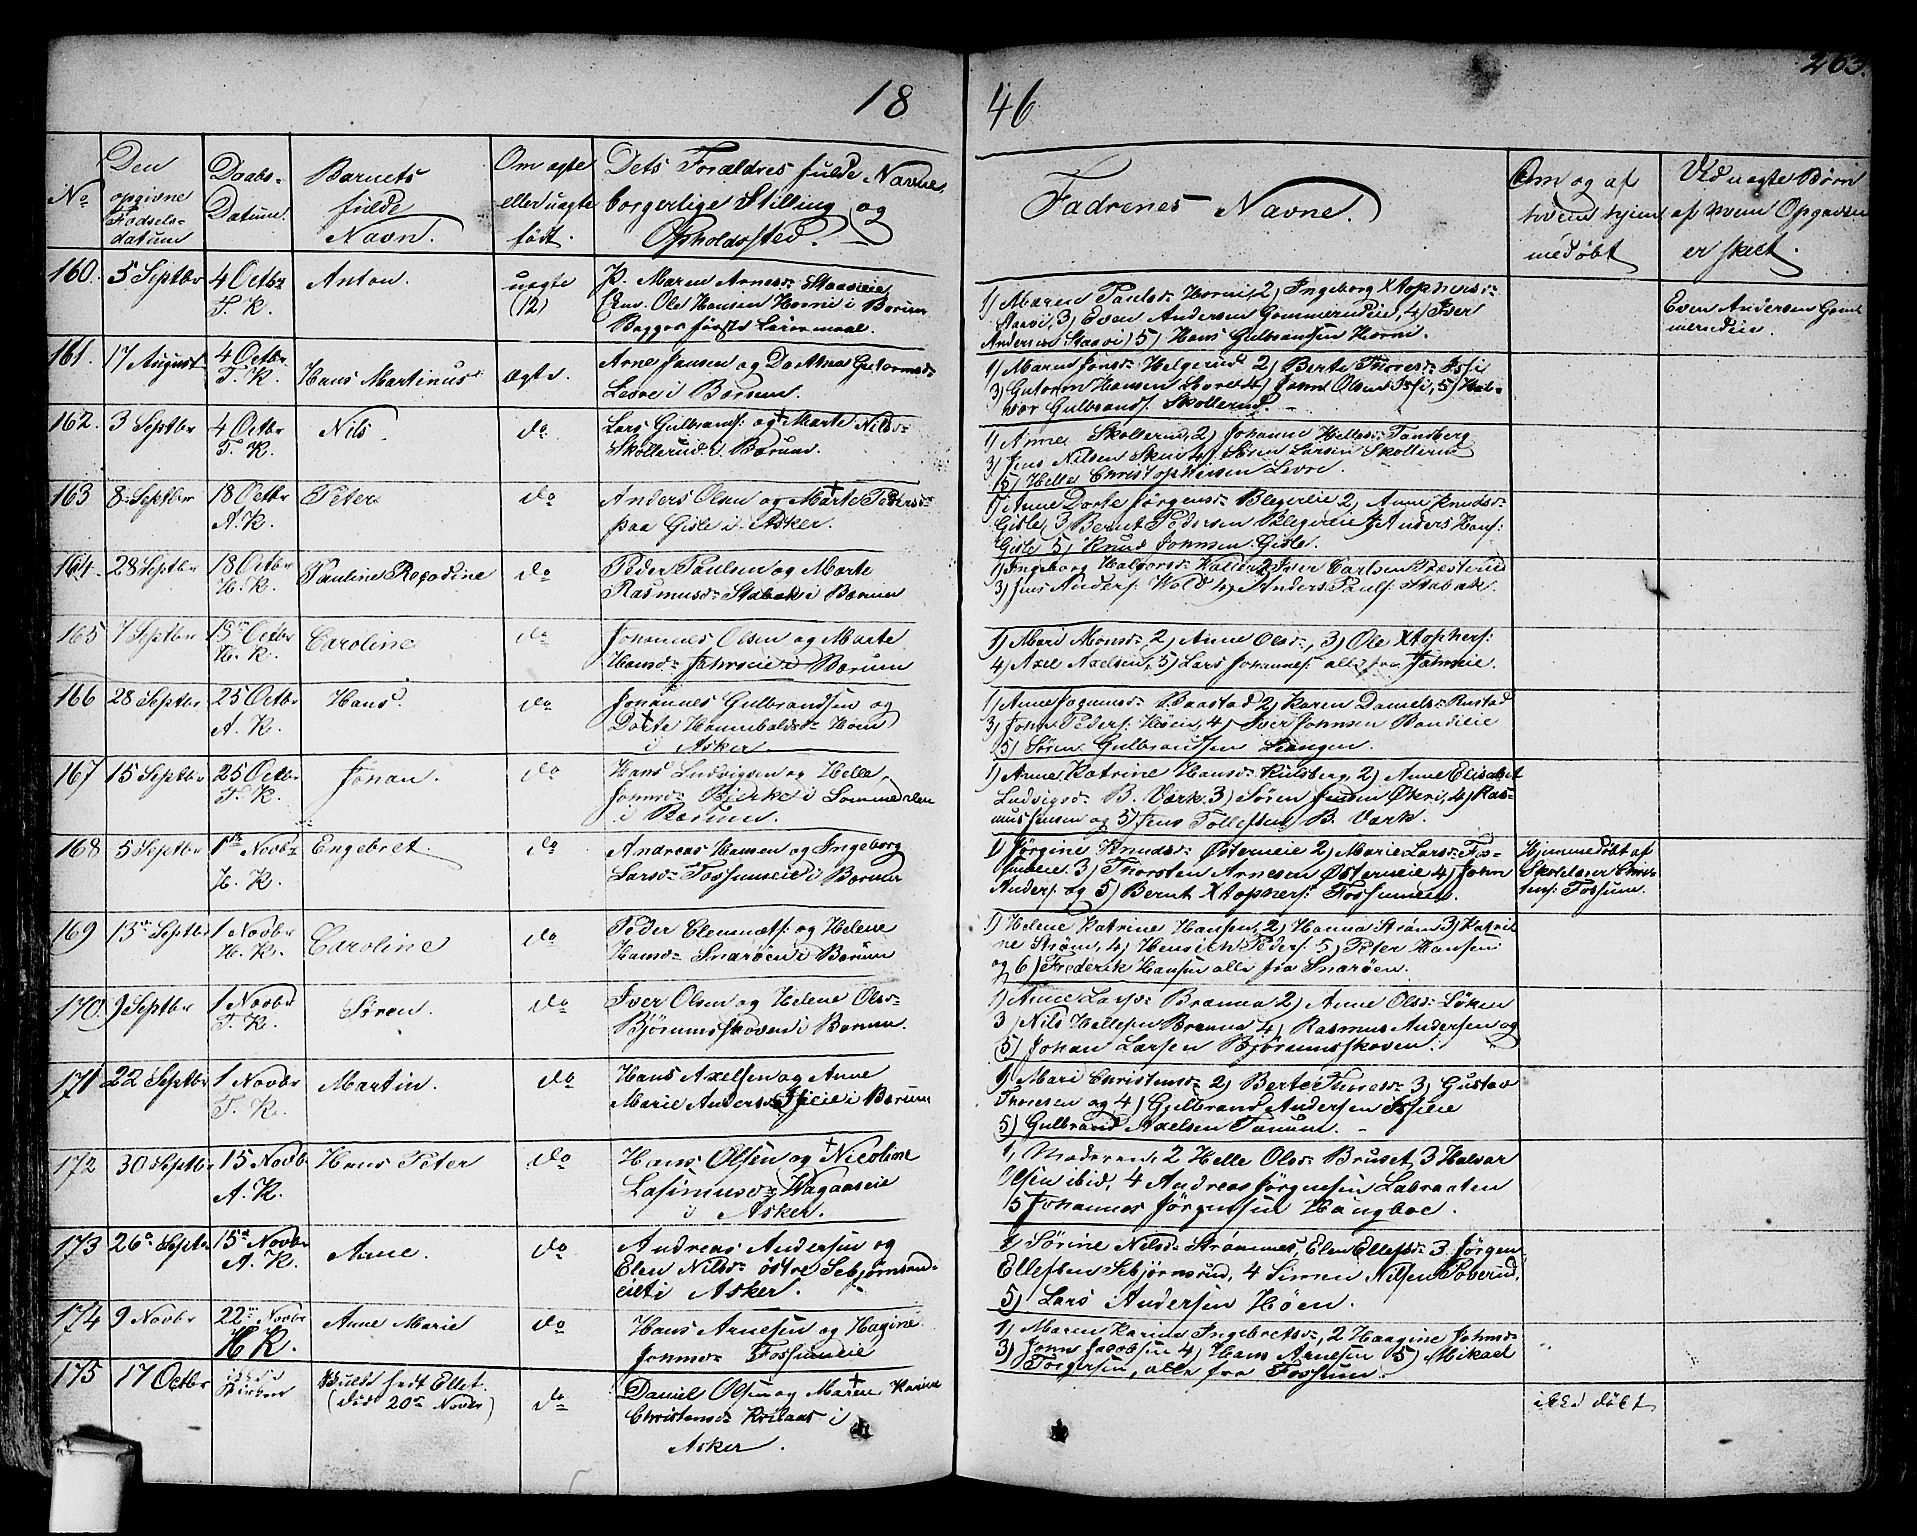 18
46
263.
No
Den opgivne Fødsels- datum
Daabs- Datum.
Barnets fulde Navn.
Om ægte eller uægte født.
Dets Forældres fulde Navne, borgerlige Stilling og Opholdssted.
Fadrenes Navne.
Om og af hvem hjemmedøbt
Ved uægte Børn af hvem Opgaven er skeet.
160. 5 Septbr 4 Octbr Anton. uægte P. Maren Arnesd: Staavieie
T. K. (12) Ole Hansen Horni i Berum
Begges første Leiermaal.
1) Maren Paulsd: Horni, 2) Ingeborg Xtophersd:
Staavi, 3) Even Andersen Gommerudeie, 4) Iver
Andersen Staavi 5) Hans Gulbrandsen Horni.
Even Andersen Gommerudeie.
161. 17 August 4 Octbr Hans Martinus ægte. Arne Jansen og Guttormsd:
T. K. i Berum.
1) Maren Helgerud 2) Berte Thoresd: Issi
3) Gutorm Hansen 4) John Olsen Issi, 5) Hal-
vor Gulbrands: Skollerud.
162. 3 Septbr 4 Octbr Nils. do Lars Gulbrands: og Marte Nilsd:
T. K. Skollerud i Bærum.
1) Anne Skollerud, 2) Johanne Hellesd: Tandberg
3) Jens Nilsen 4) Søren Larsen Skollerud
5) Helle Christophersen
163 8 Septbr 18 Octbr Peter do Anders Olsen og Marte Pedersd:
A. K. paa Gisle i Asker.
1) Anne Dorte Jørgensd: Blegereie 2, Anne Knudsd:
Gisle, 3 Bernt Pedersen Blegereie 4 Anders Hans:
Gisle 5) Knud Johnsen Gisle.
164. 28 Septbr 18 Octbr Pauline Regodine do Peder Paulsen og Marte
H. K. Rasmusd: Stabæk i Bærum
1) Ingeborg Halvorsd: 2 Iver Carlsen Presterud
3) Jens Anders: Wold 4) Anders Pauls: Stabæk.
165 7 Septbr 18 Octbr Caroline do Johannes Olsen og Marte
H. K. Hansd: Jahreie i Bærum
1) Mari Monsd: 2) Anne Olsd:, 3) Ole Xtophers:
4) Axel Axelsen, 5) Lars Johannes: alle fra Jahreie.
166 28 Septbr 25 Octbr Hans. do Johannes Gulbrandsen og
A. K. Dorte Hannibalsd: Høen
i Asker.
1) Anne 2) Karen Danielsd: Rustad
3) John Peders: Høen, 4) Iver Johnsen
5) Søren Gulbrandsen
167 15 Septbr 25 Octbr Johan. do Hans Ludvigsen og Helle
T. K. Johnsd: Bjerke i Lommedalen
i Bærum.
1) Anne Katrine Hansd: Kulsberg, 2) Anne Elisabet
Ludvigsd: B. Værk. 3) Søren Jensen Økri, 4) Ras-
mus Jensen og 5) Jens Tollefsen B. Værk.
168 5 Septbr 1ste Novbr Engebret. do Andreas Hansen og Ingeborg
H. K. Larsd: Fossumeie i Bærum
1) Jørgine Knudsd: Østerneie 2) Marie Larsd: Fos-
sumeie. 3) Thorsten Arnesen Østerneie 4) John
Anders: og 5) Bernt Xtophers: Fossumeie.
Hjemmedøbt af
Skolelærer Chris-
tens: Fossum.
169 13 Septbr 1 Novbr Caroline do Peder Clemmets: og Helene
H. K. Hansd: Snarøen i Bærum
1) Helene Katrine Hansen, 2) Hanna Strøm 3) Katri-
ne Strøm, 4) Hensich Peders: 5) Peter Hansen
og 6) Frederik Hansen alle fra Snarøen.
170. 9 Septbr 1 Novbr Siren. do Iver Olsen og Helene Olsd:
T. K. Bjørumsskoven i Bærum.
1) Anne Larsd: Brenna 2) Anne Olsd: Løken
3) Nils Hellesen Brenna 4) Rasmus Andersen og
5) Johan Larsen Bjørumsskoven.
171 22 Septbr 1 Novbr Martin. do Hans Axelsen og Anne
T. K. Marie Andersd: Issieie i Bærum
1) Mari Christensd: 2) Berte 3) Gustav
Thoresen og 4) Gulbrand Andersen Issieie
5) Gulbrand Axelsen Tanum.
172 30 Septbr 15 Novbr Hans Peter do Hans Olsen og Nicoline
A. K. i Asker.
1, Moderen, 2 Helle Olsd: Bruset 3 Halvor
Olsen ibid, 4 Andreas Jørgensen Labraaten
5 Johannes Jørgensen Haugboe.
173 26 Septbr 15 Novbr Anne. do Andreas Andersen og
A. K. Elen Nilsd: østre Sebjørnsrud-
eiet i Asker.
1 Sørine Nilsd: Strømmes, Elen Ellefsd: 3. Jørgen
Ellefsen Sebjørnsrud, 4 Simen Nilsen
5) Lars Andersen Høen.
174 9 Novbr 22 Novbr Anne Marie do Hans Arnesen og Hagine
H K. Johnsd: Fossumeie
1) Maren Karine Ingebretsd:, 2 Haagine Johnsd:
3) John Jacobsen 4) Hans Arnesen 5) Mikael
Torgersen, alle fra Fossum.
175 17 Octbr født Ellet. do Daniel Olsen og Maren Karine
(død 20 Novbr) Christensd: i
Asker.
ikke døbt